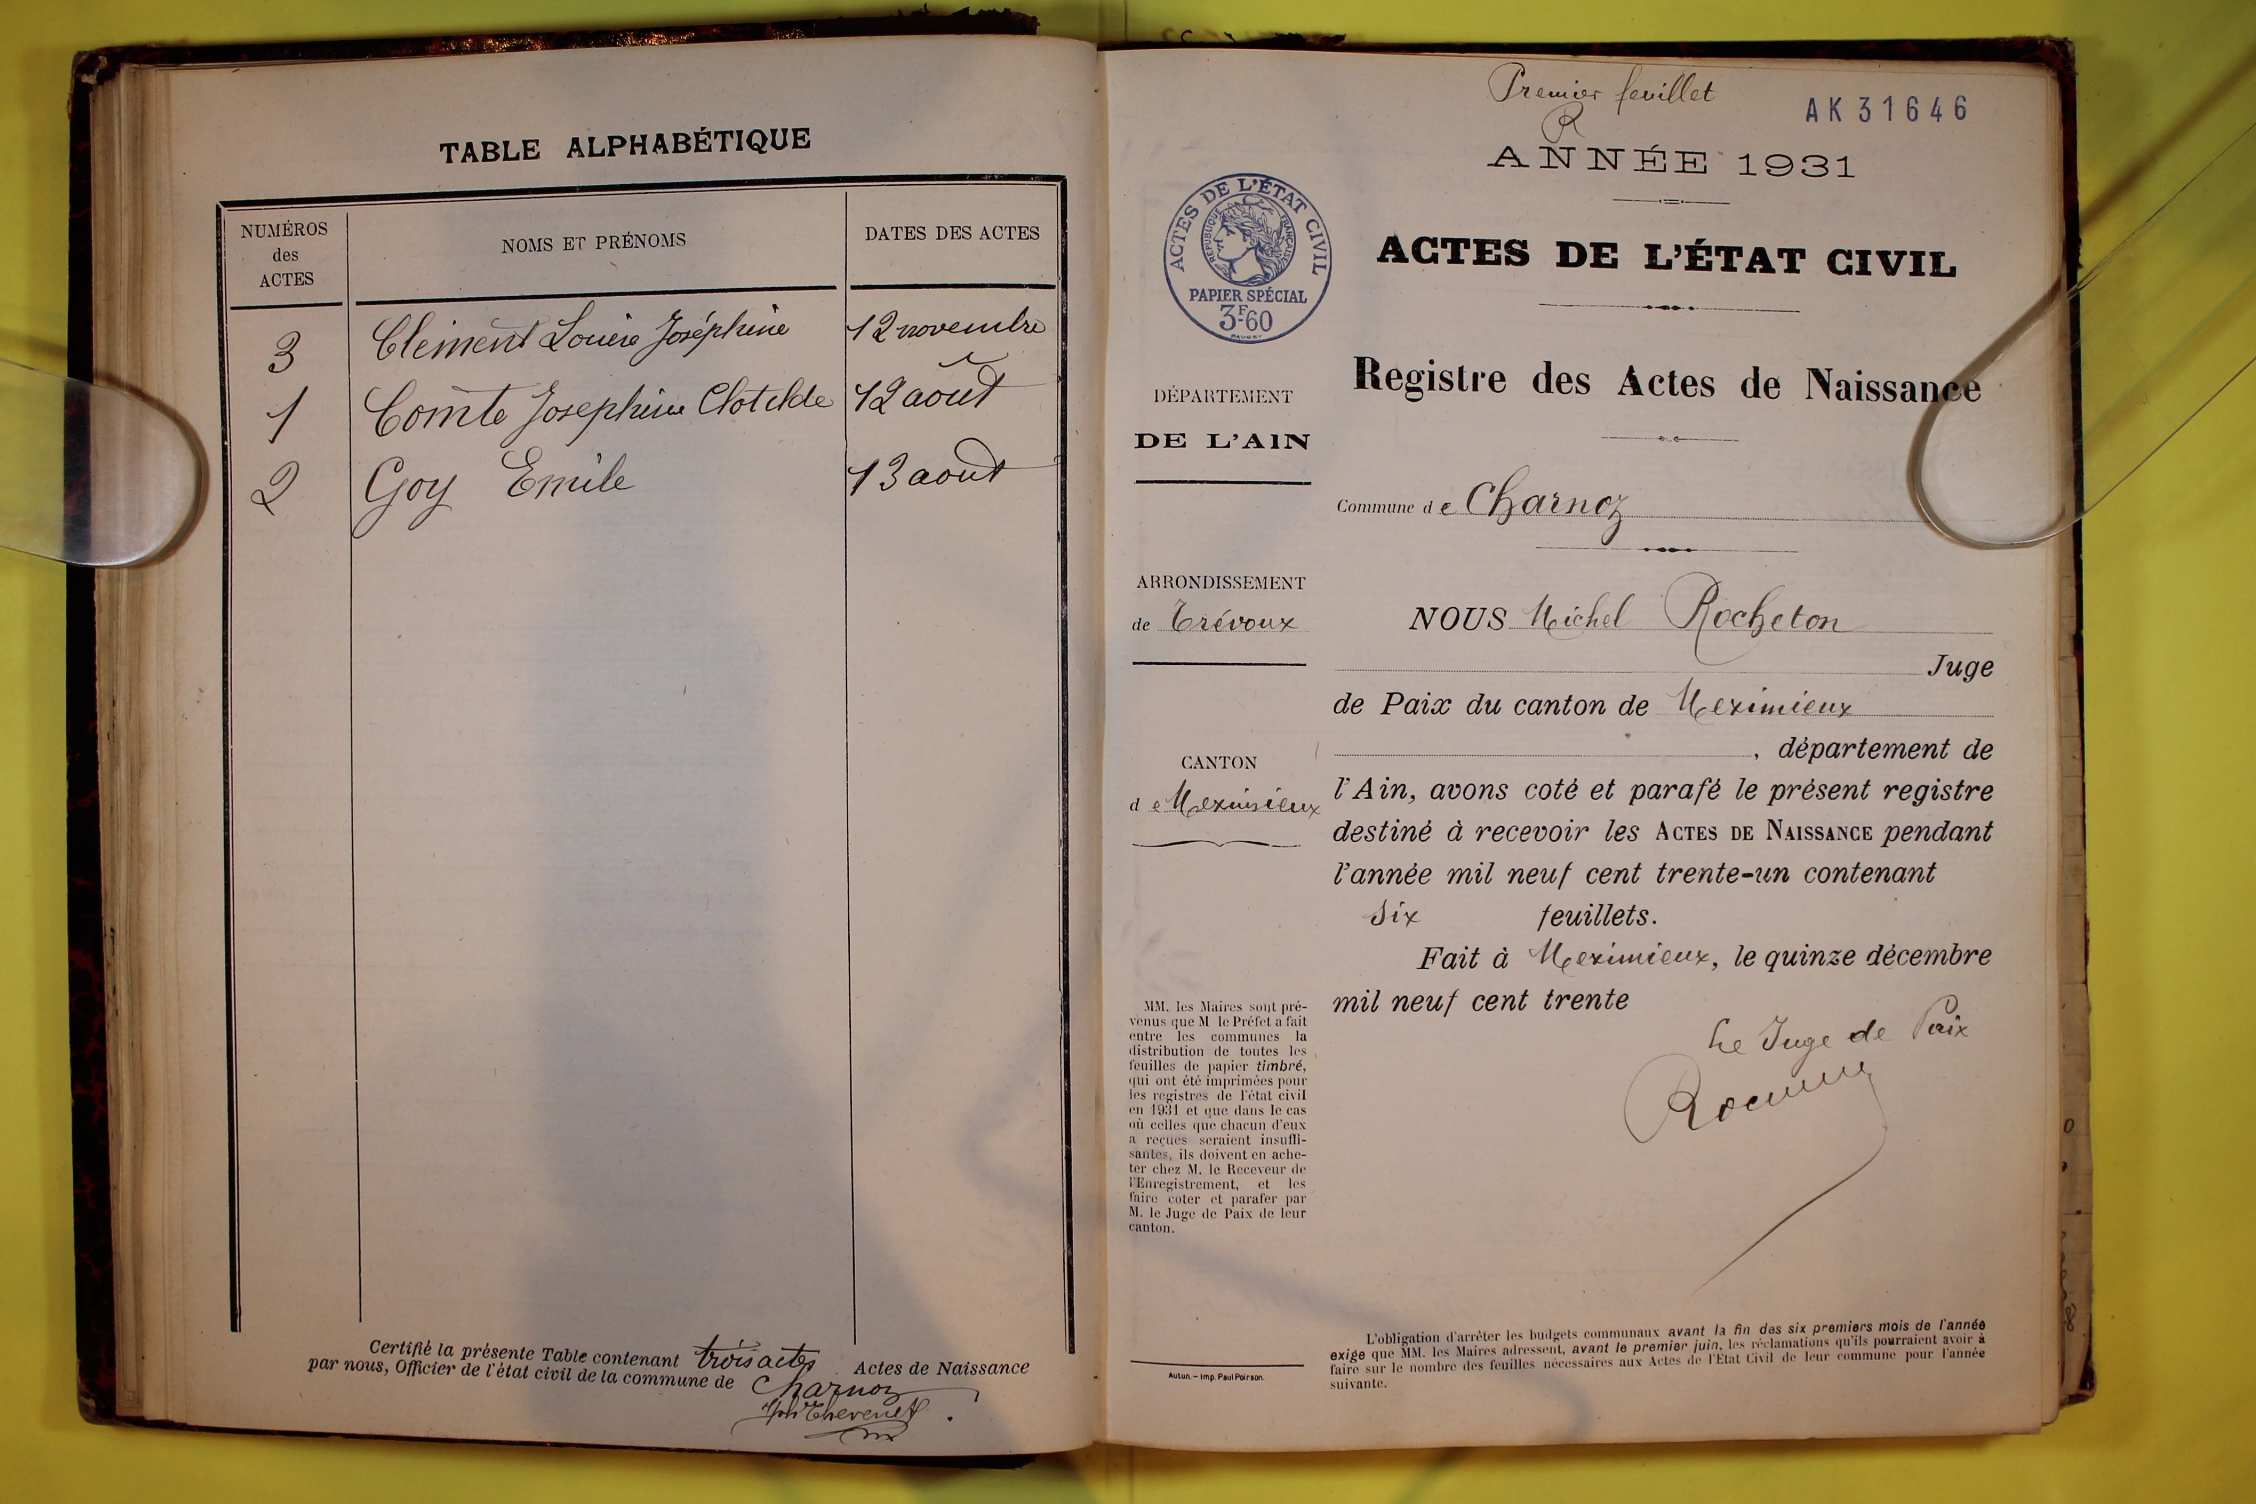 TABLE ALPHABÉTIQUE
NUMÉROS
des
ACTES
NOMS ET PRÉNOMS
DATES DES ACTES
3 Clément Louise Joséphine 12 novembre
1 Comte Josephine Clotilde 12 août
2 Goy Emile 13 août
Certifié la présente Table contenant trois actes Actes de Naissance
par nous, Officier de l'état civil de la commune de Charnoz
Thevenet
Premier feuillet
R
AK31646
ANNÉE 1931
ACTES DE L'ÉTAT CIVIL
REPUBLIQUE FRANÇAISE
PAPIER SPÉCIAL
3F60
ACTES DE L'ÉTAT CIVIL
Registre des Actes de Naissance
DÉPARTEMENT
DE L'AIN
Commune de Charnoz
ARRONDISSEMENT
de Trévoux
NOUS Michel Rocheton
Juge
de Paix du canton de Meximieux
, département de
CANTON
de Meximieux
l'Ain, avons coté et parafé le présent registre
destiné à recevoir les ACTES DE NAISSANCE pendant
l'année mil neuf cent trente-un contenant
six feuillets.
Fait à Meximieux, le quinze décembre
mil neuf cent trente
Le Juge de Paix
MM. les Maires sont pré-
venus que M le Préfet a fait
entre les communes la
distribution de toutes les
feuilles de papier timbré,
qui ont été imprimées pour
les registres de l'état civil
en 1931 et que dans le cas
où celles que chacun d'eux
a reçues seraient insuffi-
santes, ils doivent en ache-
ter chez M. le Receveur de
l'Enregistrement, et les
faire coter et parafer par
M. le Juge de Paix de leur
canton.
Autun. — Imp. Paul Poirson.
L'obligation d'arrêter les budgets communaux avant la fin des six premiers mois de l'année
exige que MM. les Maires adressent, avant le premier juin, les réclamations qu'ils pourraient avoir à
faire sur le nombre des feuilles nécessaires aux Actes de l'Etat Civil de leur commune pour l'année
suivante.